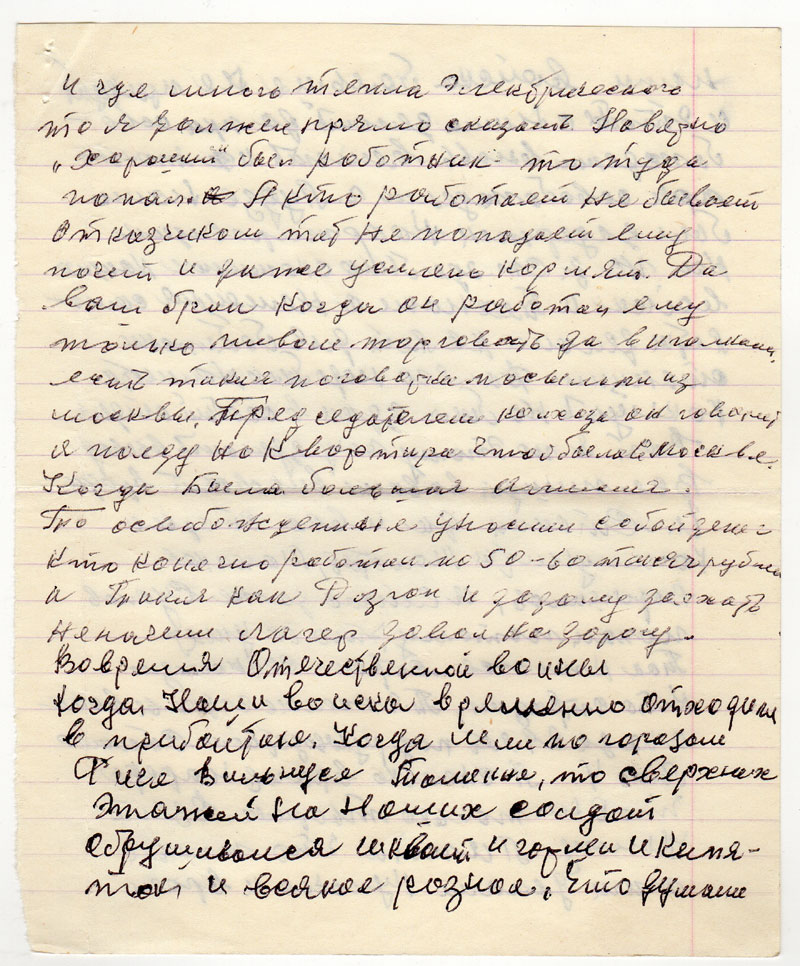 и где много тепла Электрического
то я должен прямо сказать
„Хороший" был работник то туда
попал. А кто работает не бывает
отказчиком тот не попадает ему
почет и даже усилено кормят. Да
ваш брат когда он работал ему
только пивом торговать да
есть такия поговорка из
москвы. Председателем колхоза он говорит
я поеду но квортира чтоб была в Москве.
Когда Была большая
То освобожденные уносили с собой денег
кто конечно работал по 50-60 тысяч рубли
а Такия как Розгон и
лагер на дорогу.
Вовремия Отечественной воины
когда Наши воиска временно отходили
в прибалтике. Когда шли по городам
Риге Вильнусе Таллине, то сверхних
Этажей На Наших солдат
обрушивался шквал и кипя-
ток и всякое розное. Что думали